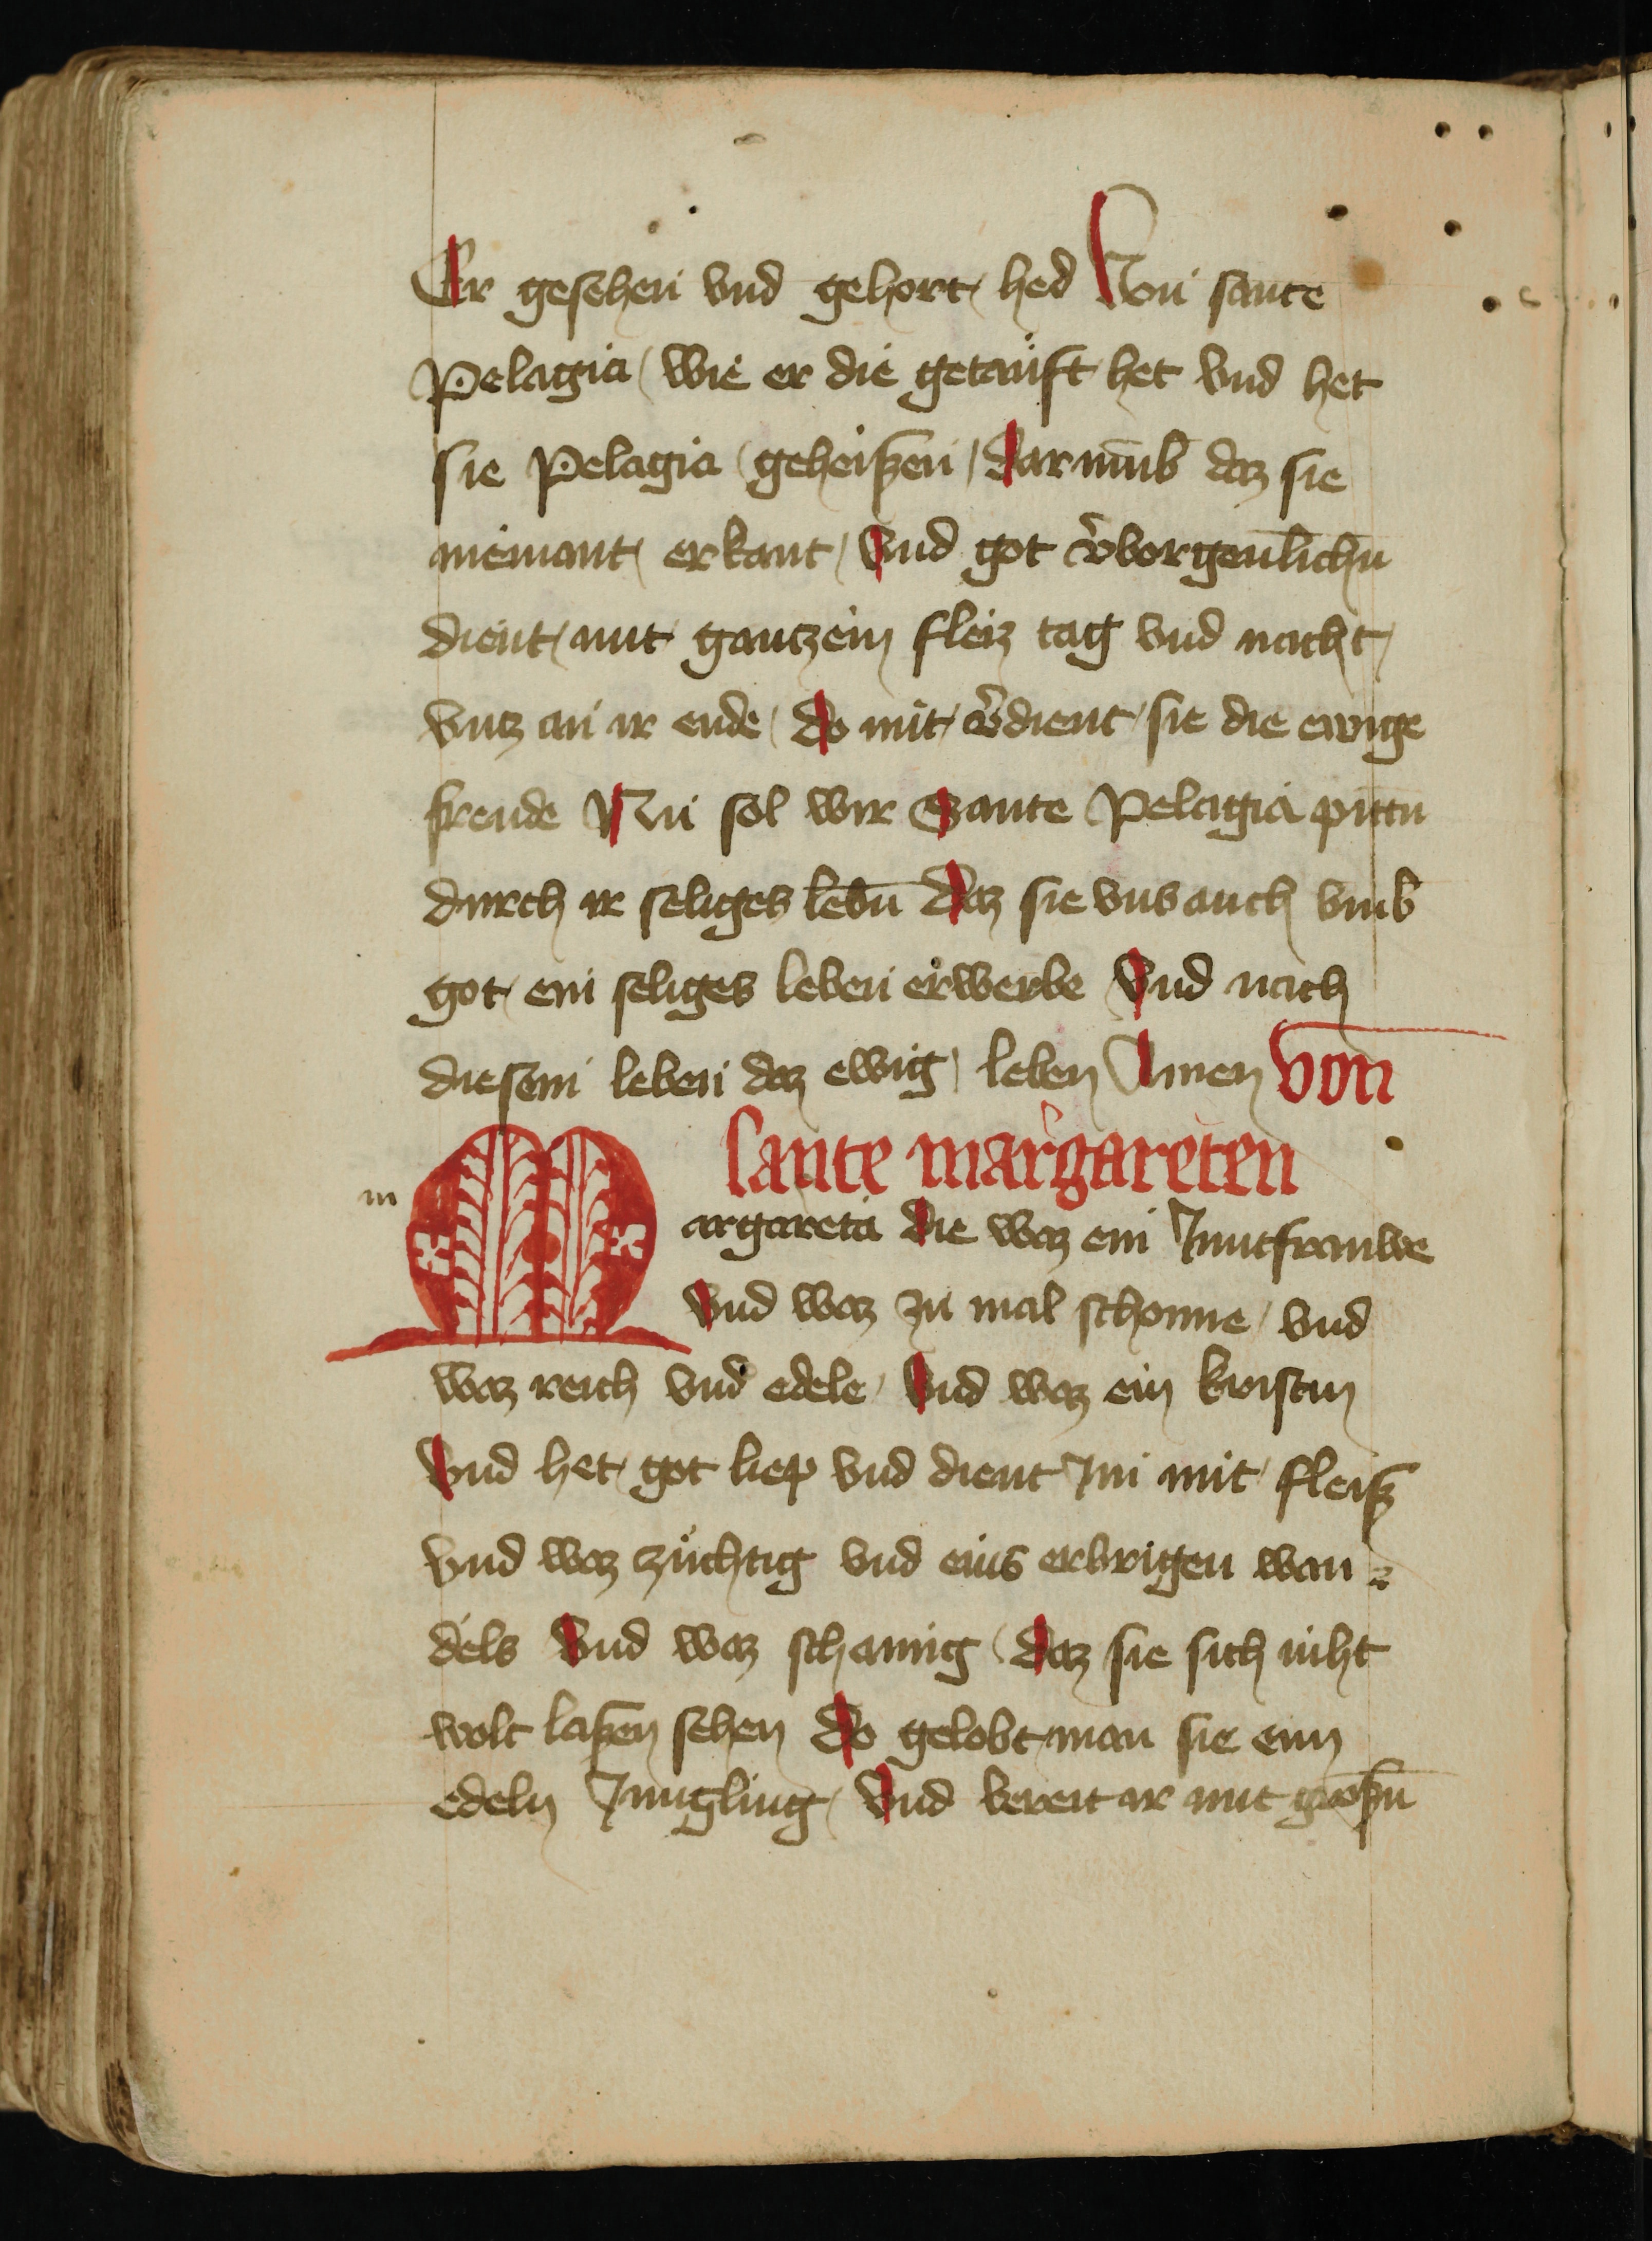 Er gesehen vnd gehort hed Von sante
Pelagia / wie er die getauft het vnd het
sie Pelagia / geheißen / dar vmb daz sie
niemant / erkant / Vnd got v̄borgenlichn̄
dient / mit ganczem fleiz tag vnd nacht /
vncz an ir ende / do mit v̄dient sie die ewige
freude Nu sol wir Sante Pelagia pittn
durch ir seliges lebn̄ Daz sie vns auch vmb
got ein seliges leben erwerbe Vnd nach
diesem leben daz ewig leben Amen von
sante margareten
m
Margareta die waz ein Junckfrauwe
Vnd waz zu mal schonne / vnd
waz reich vnd edele / Vnd waz ein kristin
Vnd het got liep vnd dient Im mit fleiß
vnd waz züchtig vnd eins erbrigen wan=
dels Vnd waz schamig / Daz sie sich niht
wolt laßen sehen Do gelobt man sie eim
edeln Jungling / Vnd bereit ir mit großn̄